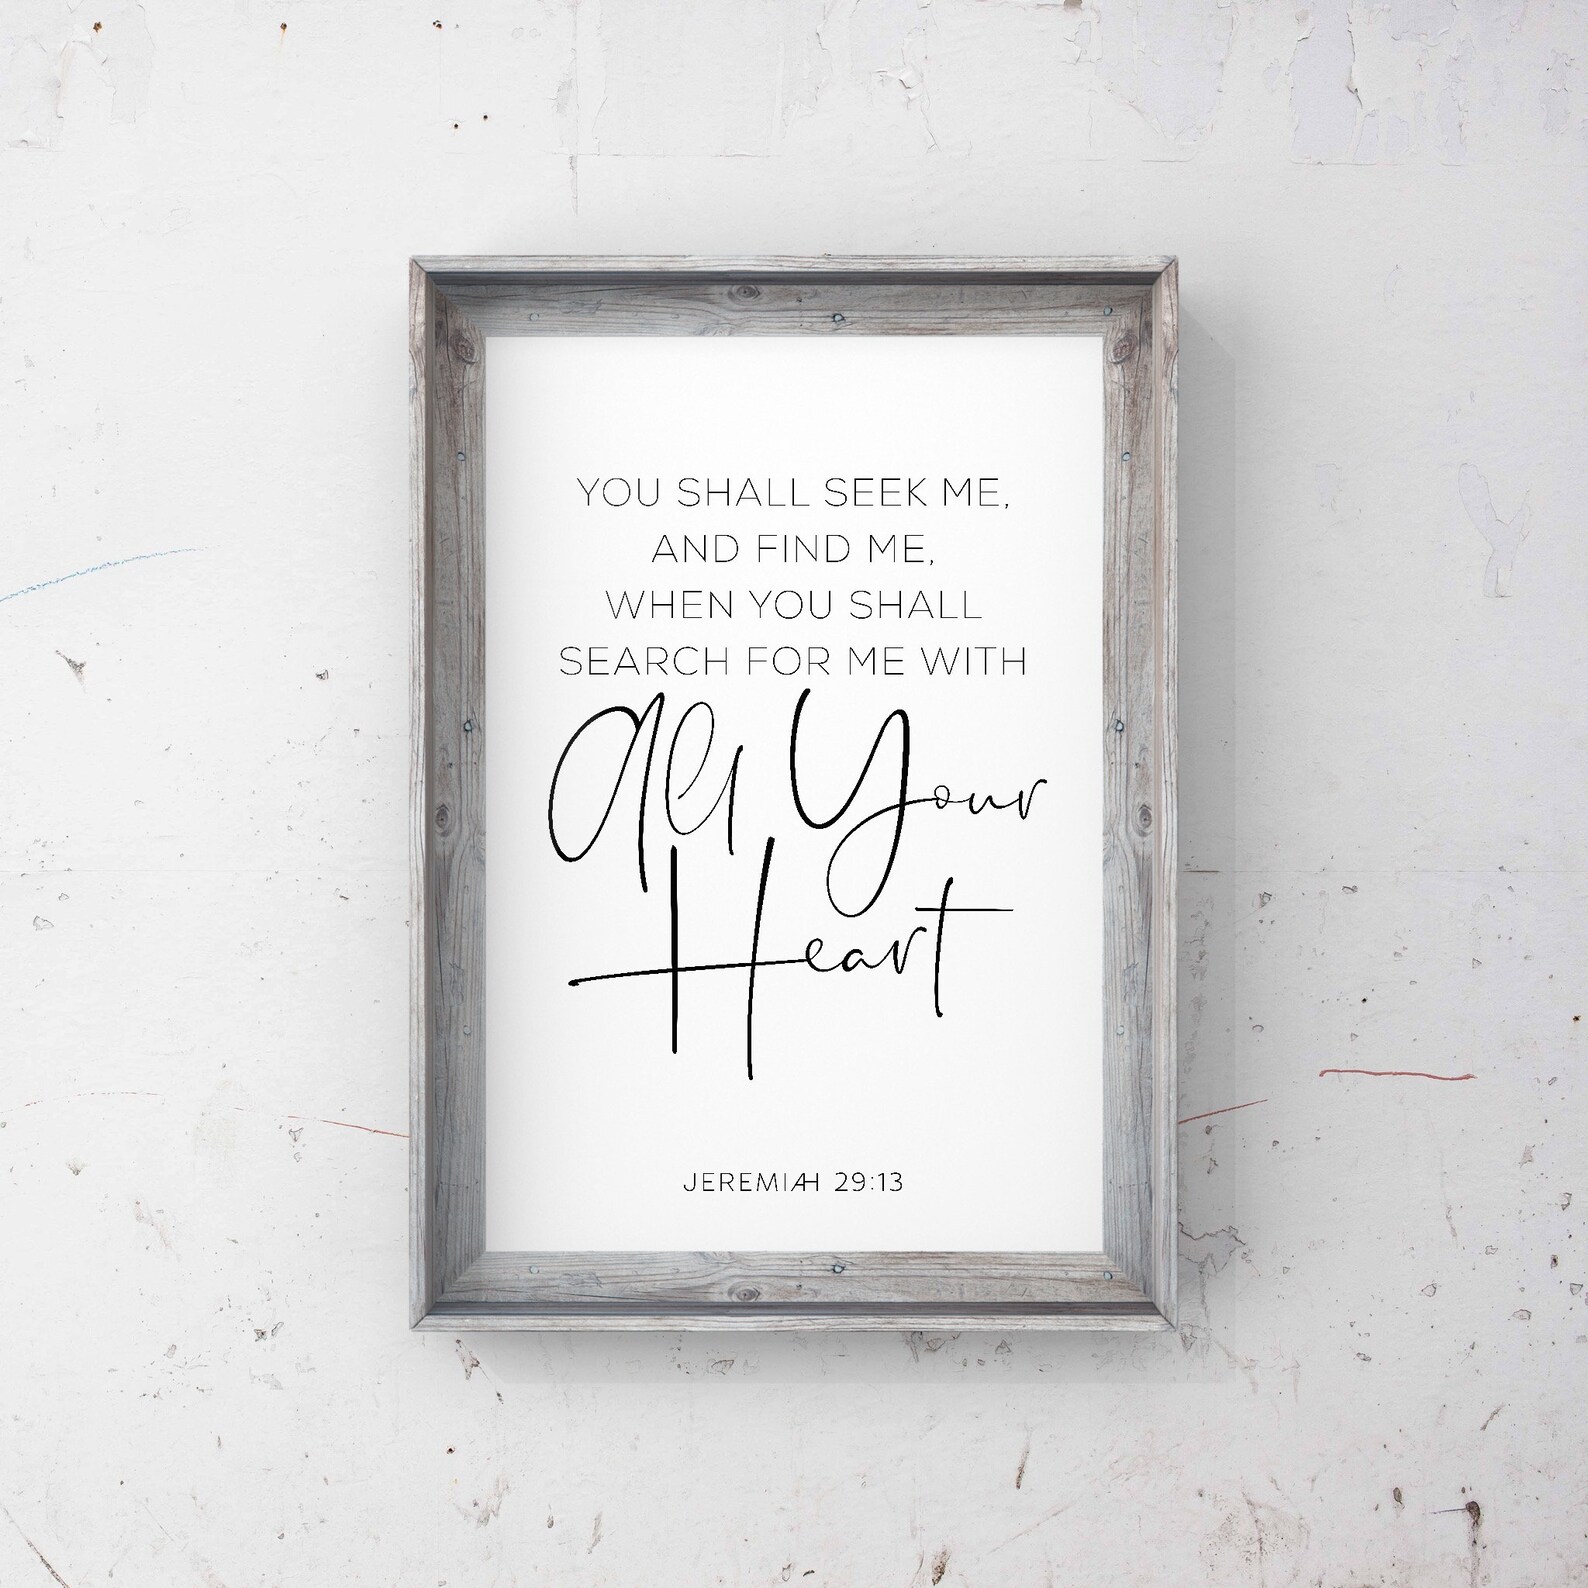 YOU SHALL SEEK ME,
AND FIND ME,
WHEN YOU SHALL
SEARCH FOR ME WITH
All Your
Heart
JEREMIAH 29:13